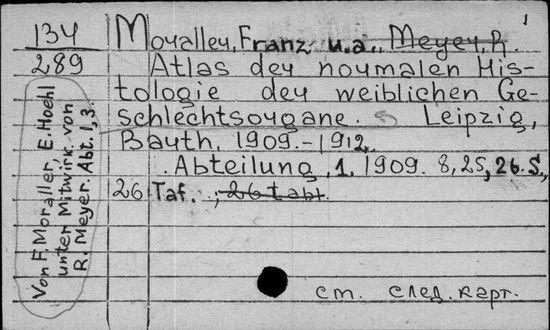 1
134
289
Moraller, Franz u.a., Meyer, R.
Atlas der normalen His-
tologie der weiblichen Ge-
schlechtsorgane. Leipzig,
Barth, 1909.-1912.
Abteilung, 1. 1909. 8,25, 26.S.,
26 Taf., 26 tabl.
Von F. Moraller, E. Hoehl
unter Mitwirk. von
R. Meyer. Abt. 1,3.
ст. след. карт.